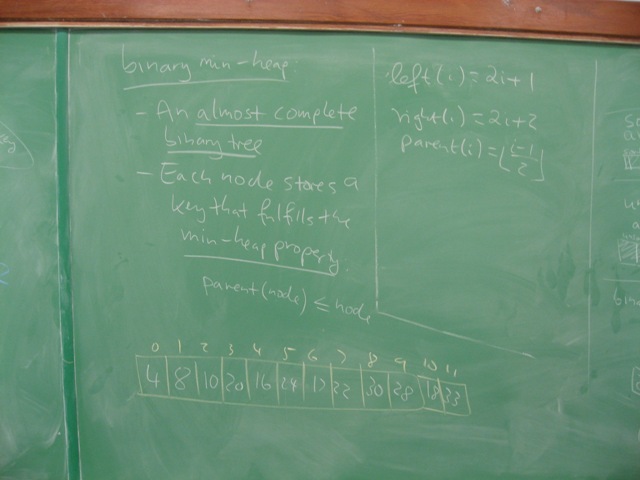 binary min-heap:
- An almost complete
binary tree
- Each node stores a
key that fulfills the
min-heap property.
parent(node) ≤ node
left(i) = 2i+1
right(i) = 2i+2
parent(i) = ⌊(i-1)/2⌋
0 1 2 3 4 5 6 7 8 9 10 11
4 8 10 20 16 24 22 30 28 18 33